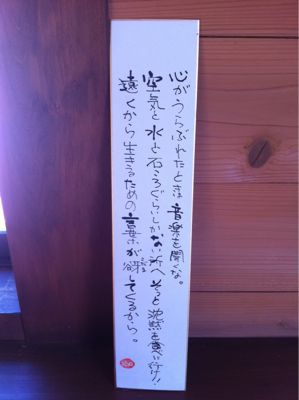 心がうらぶれたときは音楽を聞くな。
空気と水と石ころぐらいしかない所へそっと沈黙を食いに行け!
遠くから生きるための言葉が谺してくるから。